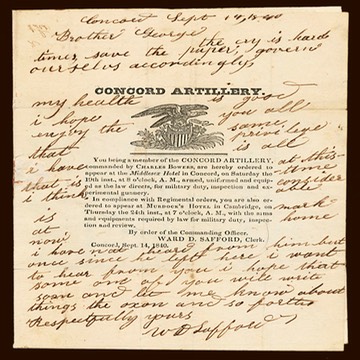 Concord Sept 19, 1840
Brother George
the cry is hard
times, save the paper, govern
ourselves accordingly
CONCORD ARTILLERY.
my health is good
i hope you all
enjoy the same
that privelege
is all
You being a member of the CONCORD ARTILLERY,
commanded by CHARLES BOWERS, are hereby ordered to
appear at the Middlesex Hotel in Concord, on Saturday the
19th inst., at 8 o'clock, A. M., armed, uniformed and equip-
ed as the law directs, for military duty, inspection and ex-
perimental gunnery.
In compliance with Regimental orders, you are also or-
dered to appear at MURDOCK'S HOTEL in Cambridge, on
Thursday the 24th inst., at 7 o'clock, A. M., with the arms
and equipments required by law for military duty, inspec-
tion and review.
By order of the Commanding Officer.
WARD D. SAFFORD, Clerk.
Concord, Sept. 14, 1840.
i have at this
that is time
i think consider
the
is mark
at home
now
i have not heard from him but
once since he left here i want
to hear from you i hope that
some one of you will write
soon and let me know about
things the oxen and so forth
Respectfully yours
W D Safford